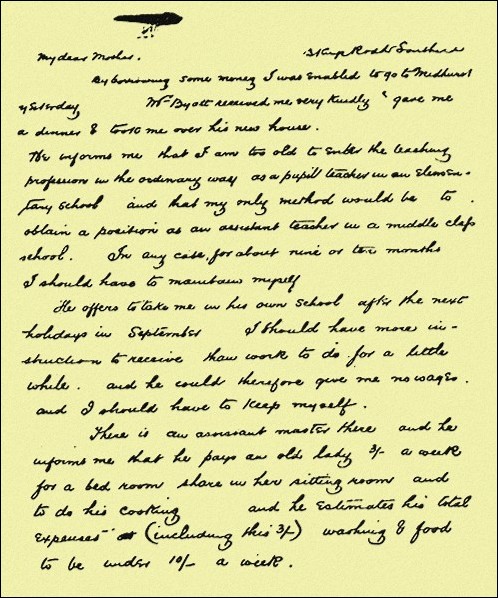 My dear Mother.
3 Kings Road Southsea
By borrowing some money I was enabled to go to Midhurst
yesterday Mr Byatt received me very kindly & gave me
a dinner & took me over his new house.
He informs me that I am too old to enter the teaching
profession in the ordinary way as a pupil teacher in an elemen-
tary school and that my only method would be to
obtain a position as an assistant teacher in a middle class
school. In any case, for about nine or ten months
I should have to maintain myself
He offers to take me in his own school after the next
holidays in September I should have more in-
struction to receive than work to do for a little
while. and he could therefore give me no wages.
and I should have to keep myself.
There is an assistant master there and he
informs me that he pays an old lady 3/- a week
for a bed room share in her sitting room and
to do his cooking and he estimates his total
expenses (including this 3/-) washing & food
to be under 10/- a week.